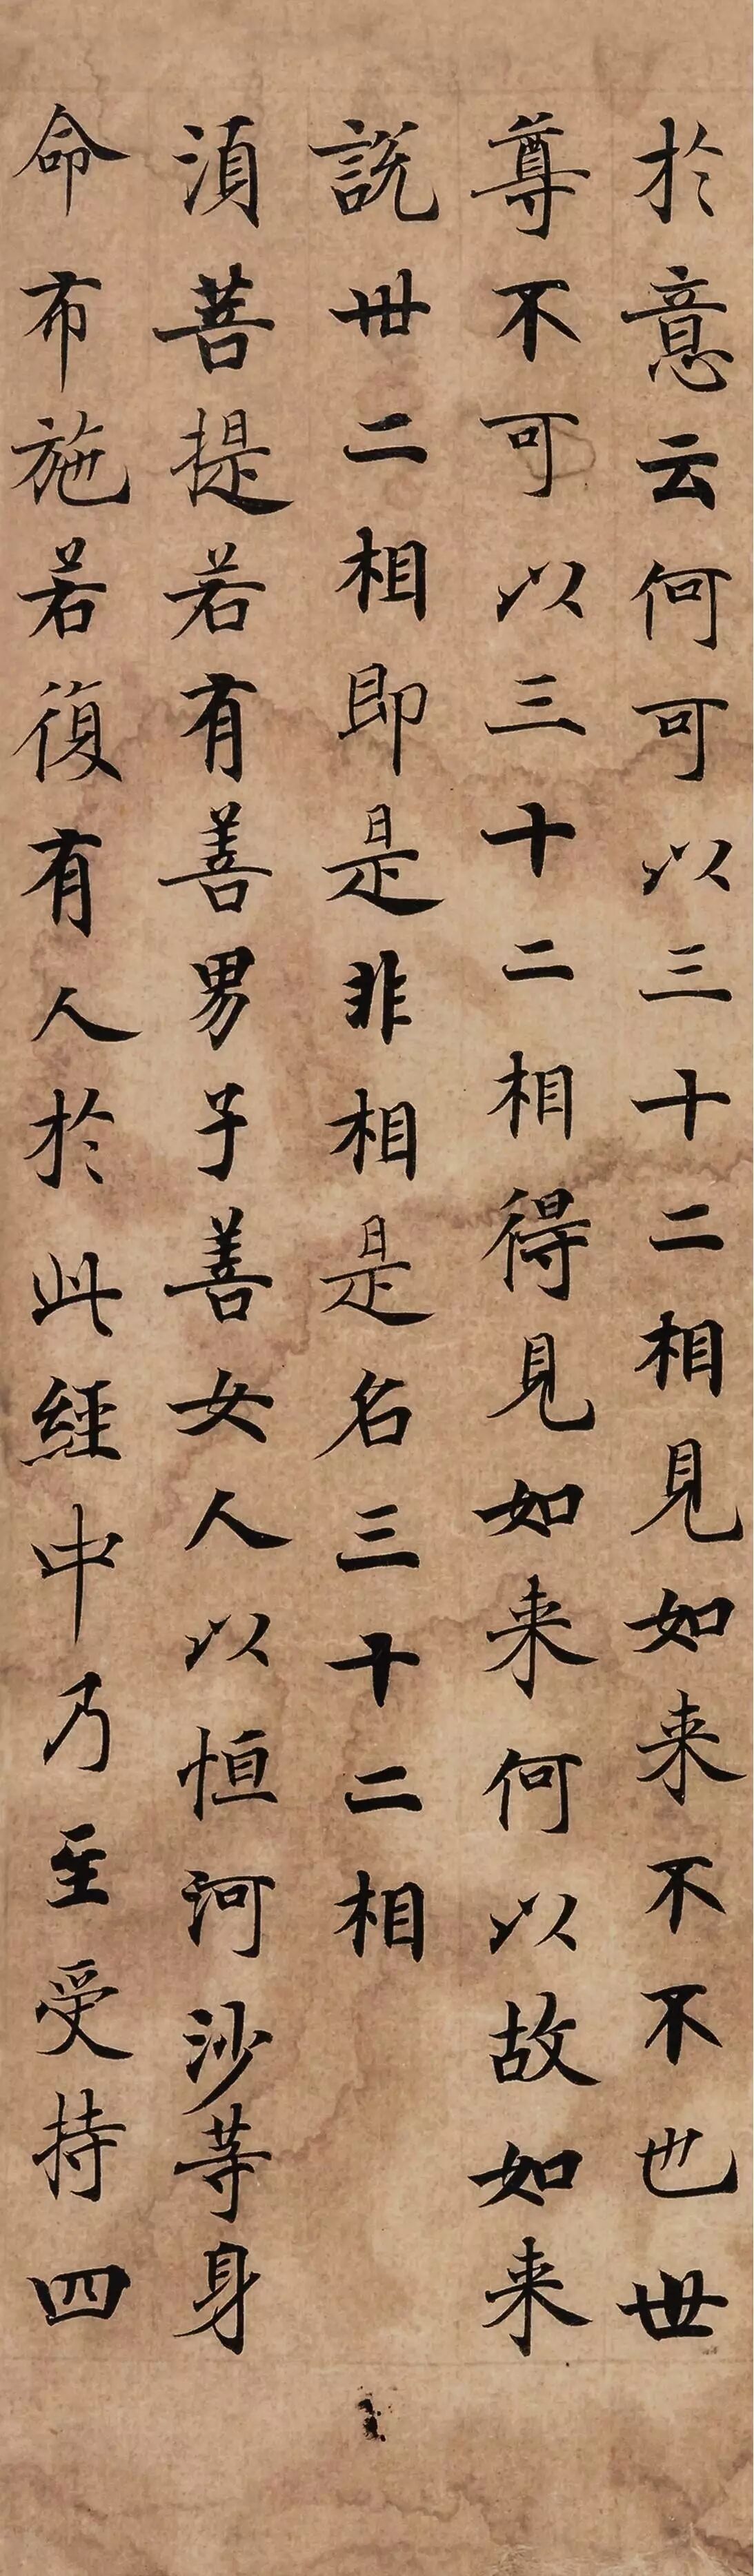 於意云何可以三十二相見如来不不也世
尊不可以三十二相得見如来何以故如来
說丗二相即是非相是名三十二相
湏菩提若有善男子善女人以恒河沙等身
命布施若復有人於此經中乃至受持四